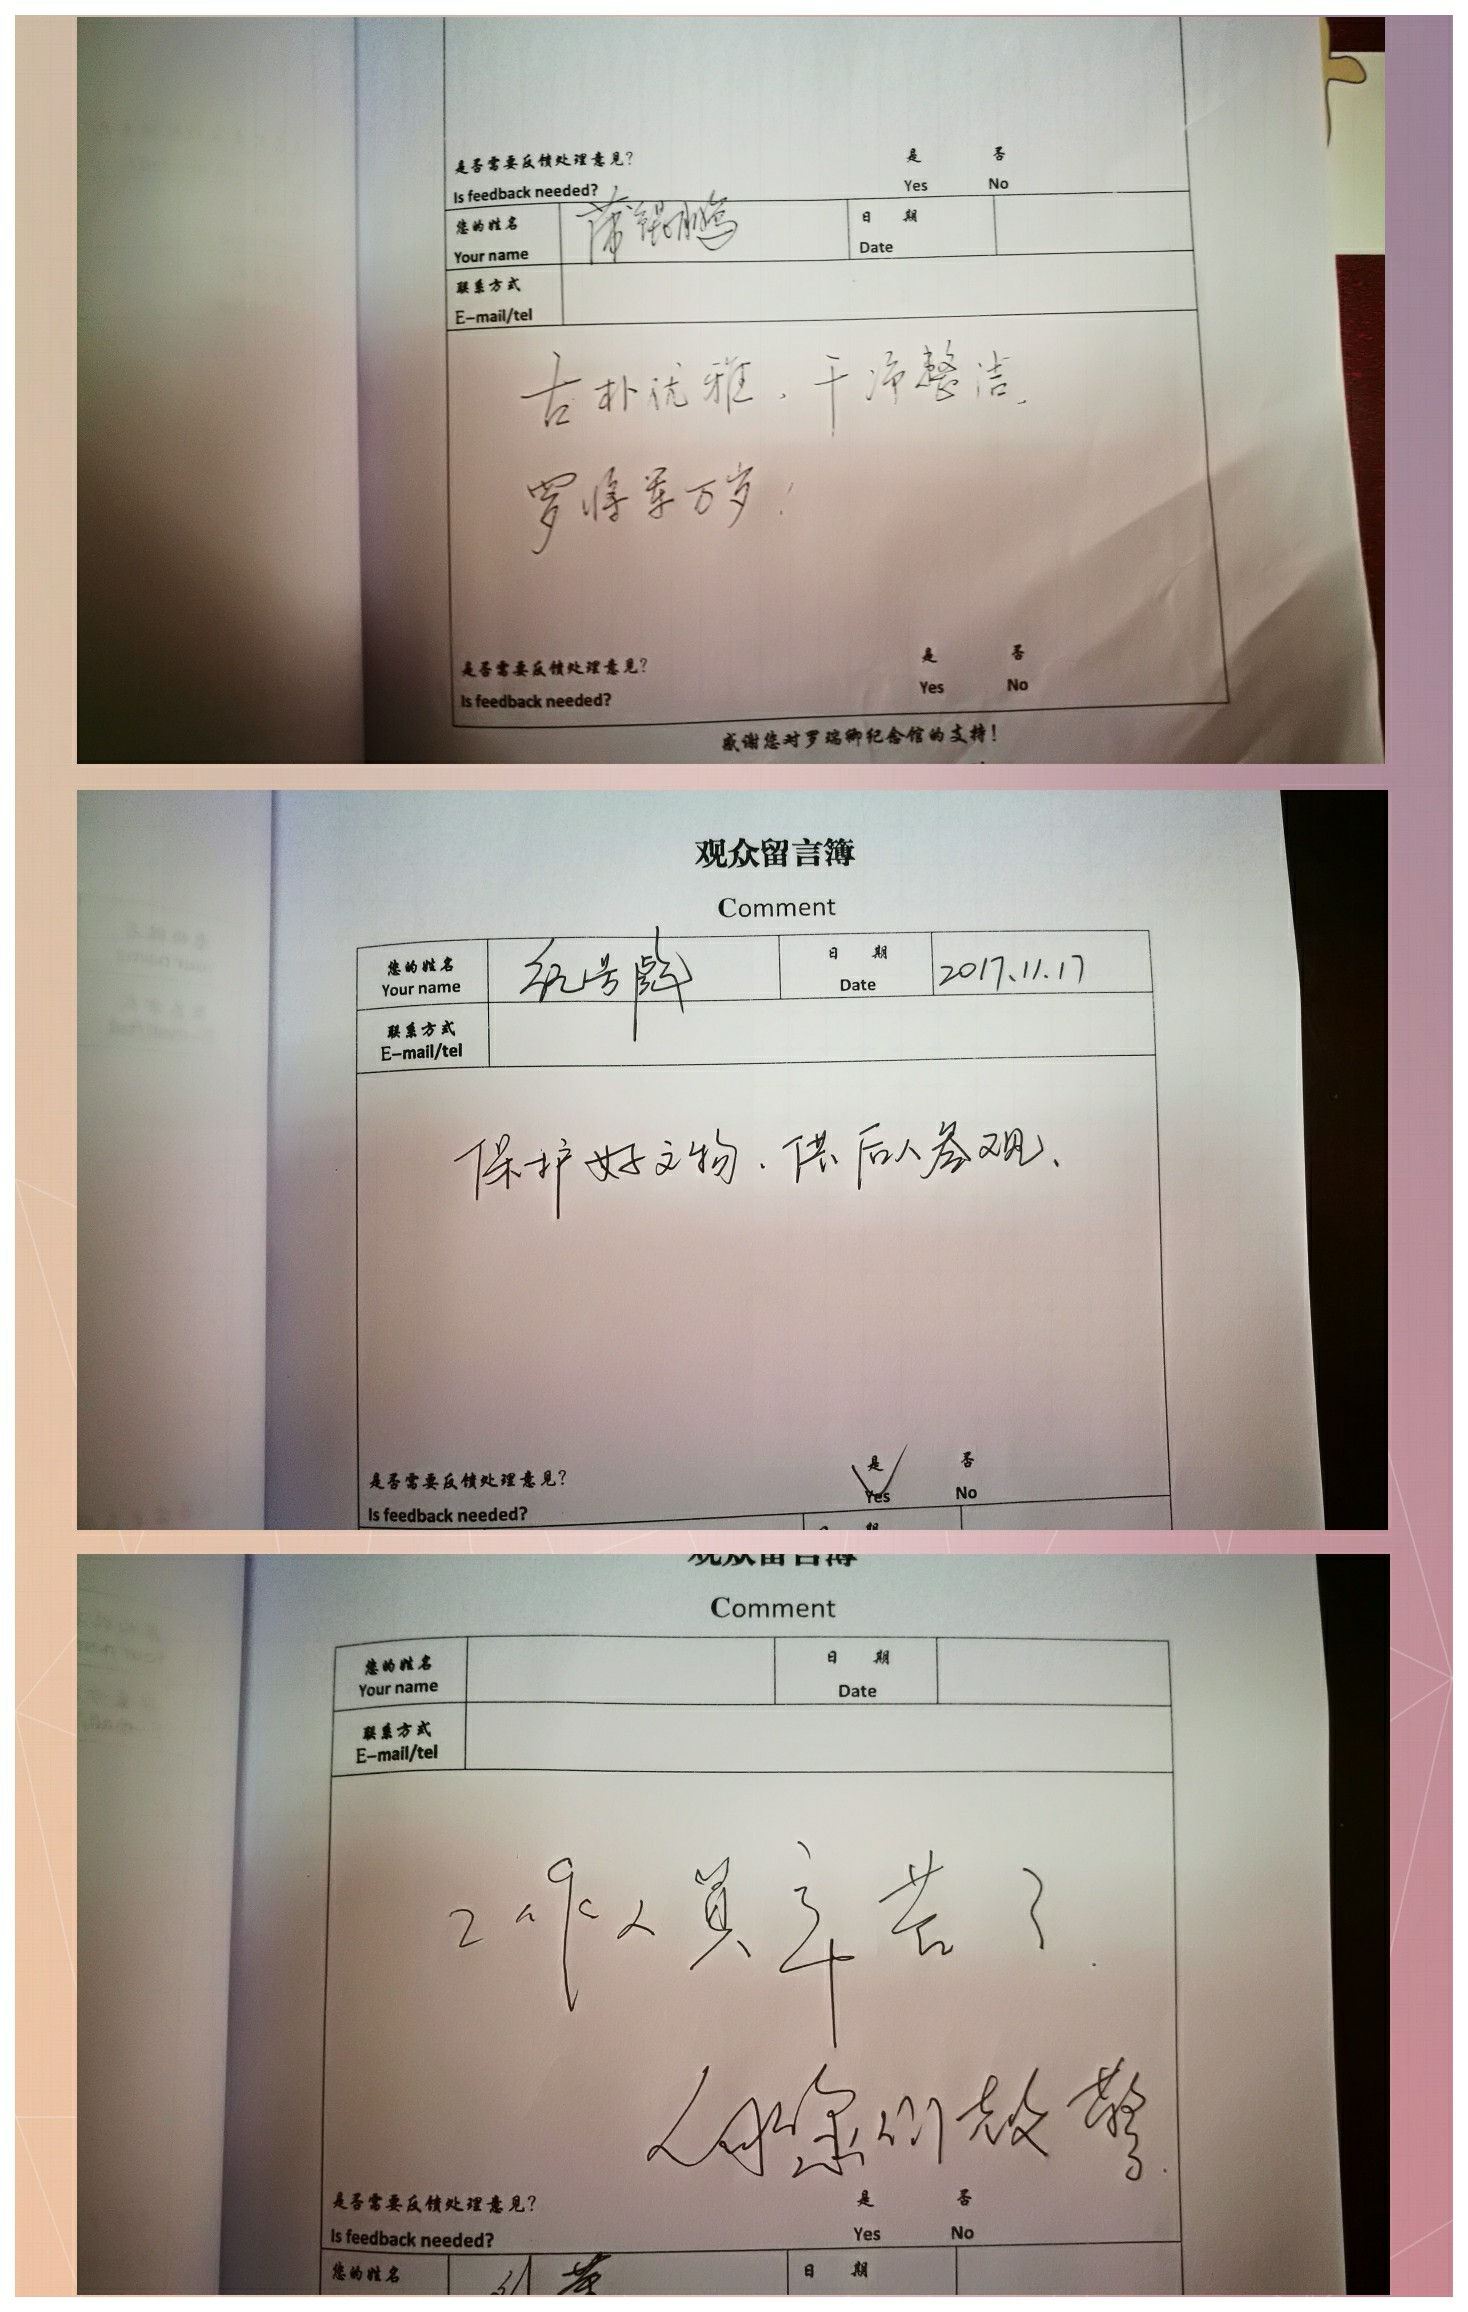 是否需要反馈处理意见？ 是 否
Is feedback needed? Yes No
您的姓名 蒲鹏 日 期
Your name Date
联系方式
E-mail/tel
古朴优雅、干净整洁、
罗将军万岁！
是否需要反馈处理意见？ 是 否
Is feedback needed? Yes No
感谢您对罗瑞卿纪念馆的支持！
观众留言簿
Comment
您的姓名 日 期 2017.11.17
Your name Date
联系方式
E-mail/tel
保护好文物、供后人参观、
是否需要反馈处理意见？ 是 否
Is feedback needed? Yes No
期
观众留言簿
Comment
您的姓名 日 期
Your name Date
联系方式
E-mail/tel
工作人员辛苦了.
是否需要反馈处理意见？ 是 否
Is feedback needed? Yes No
您的姓名 日 期